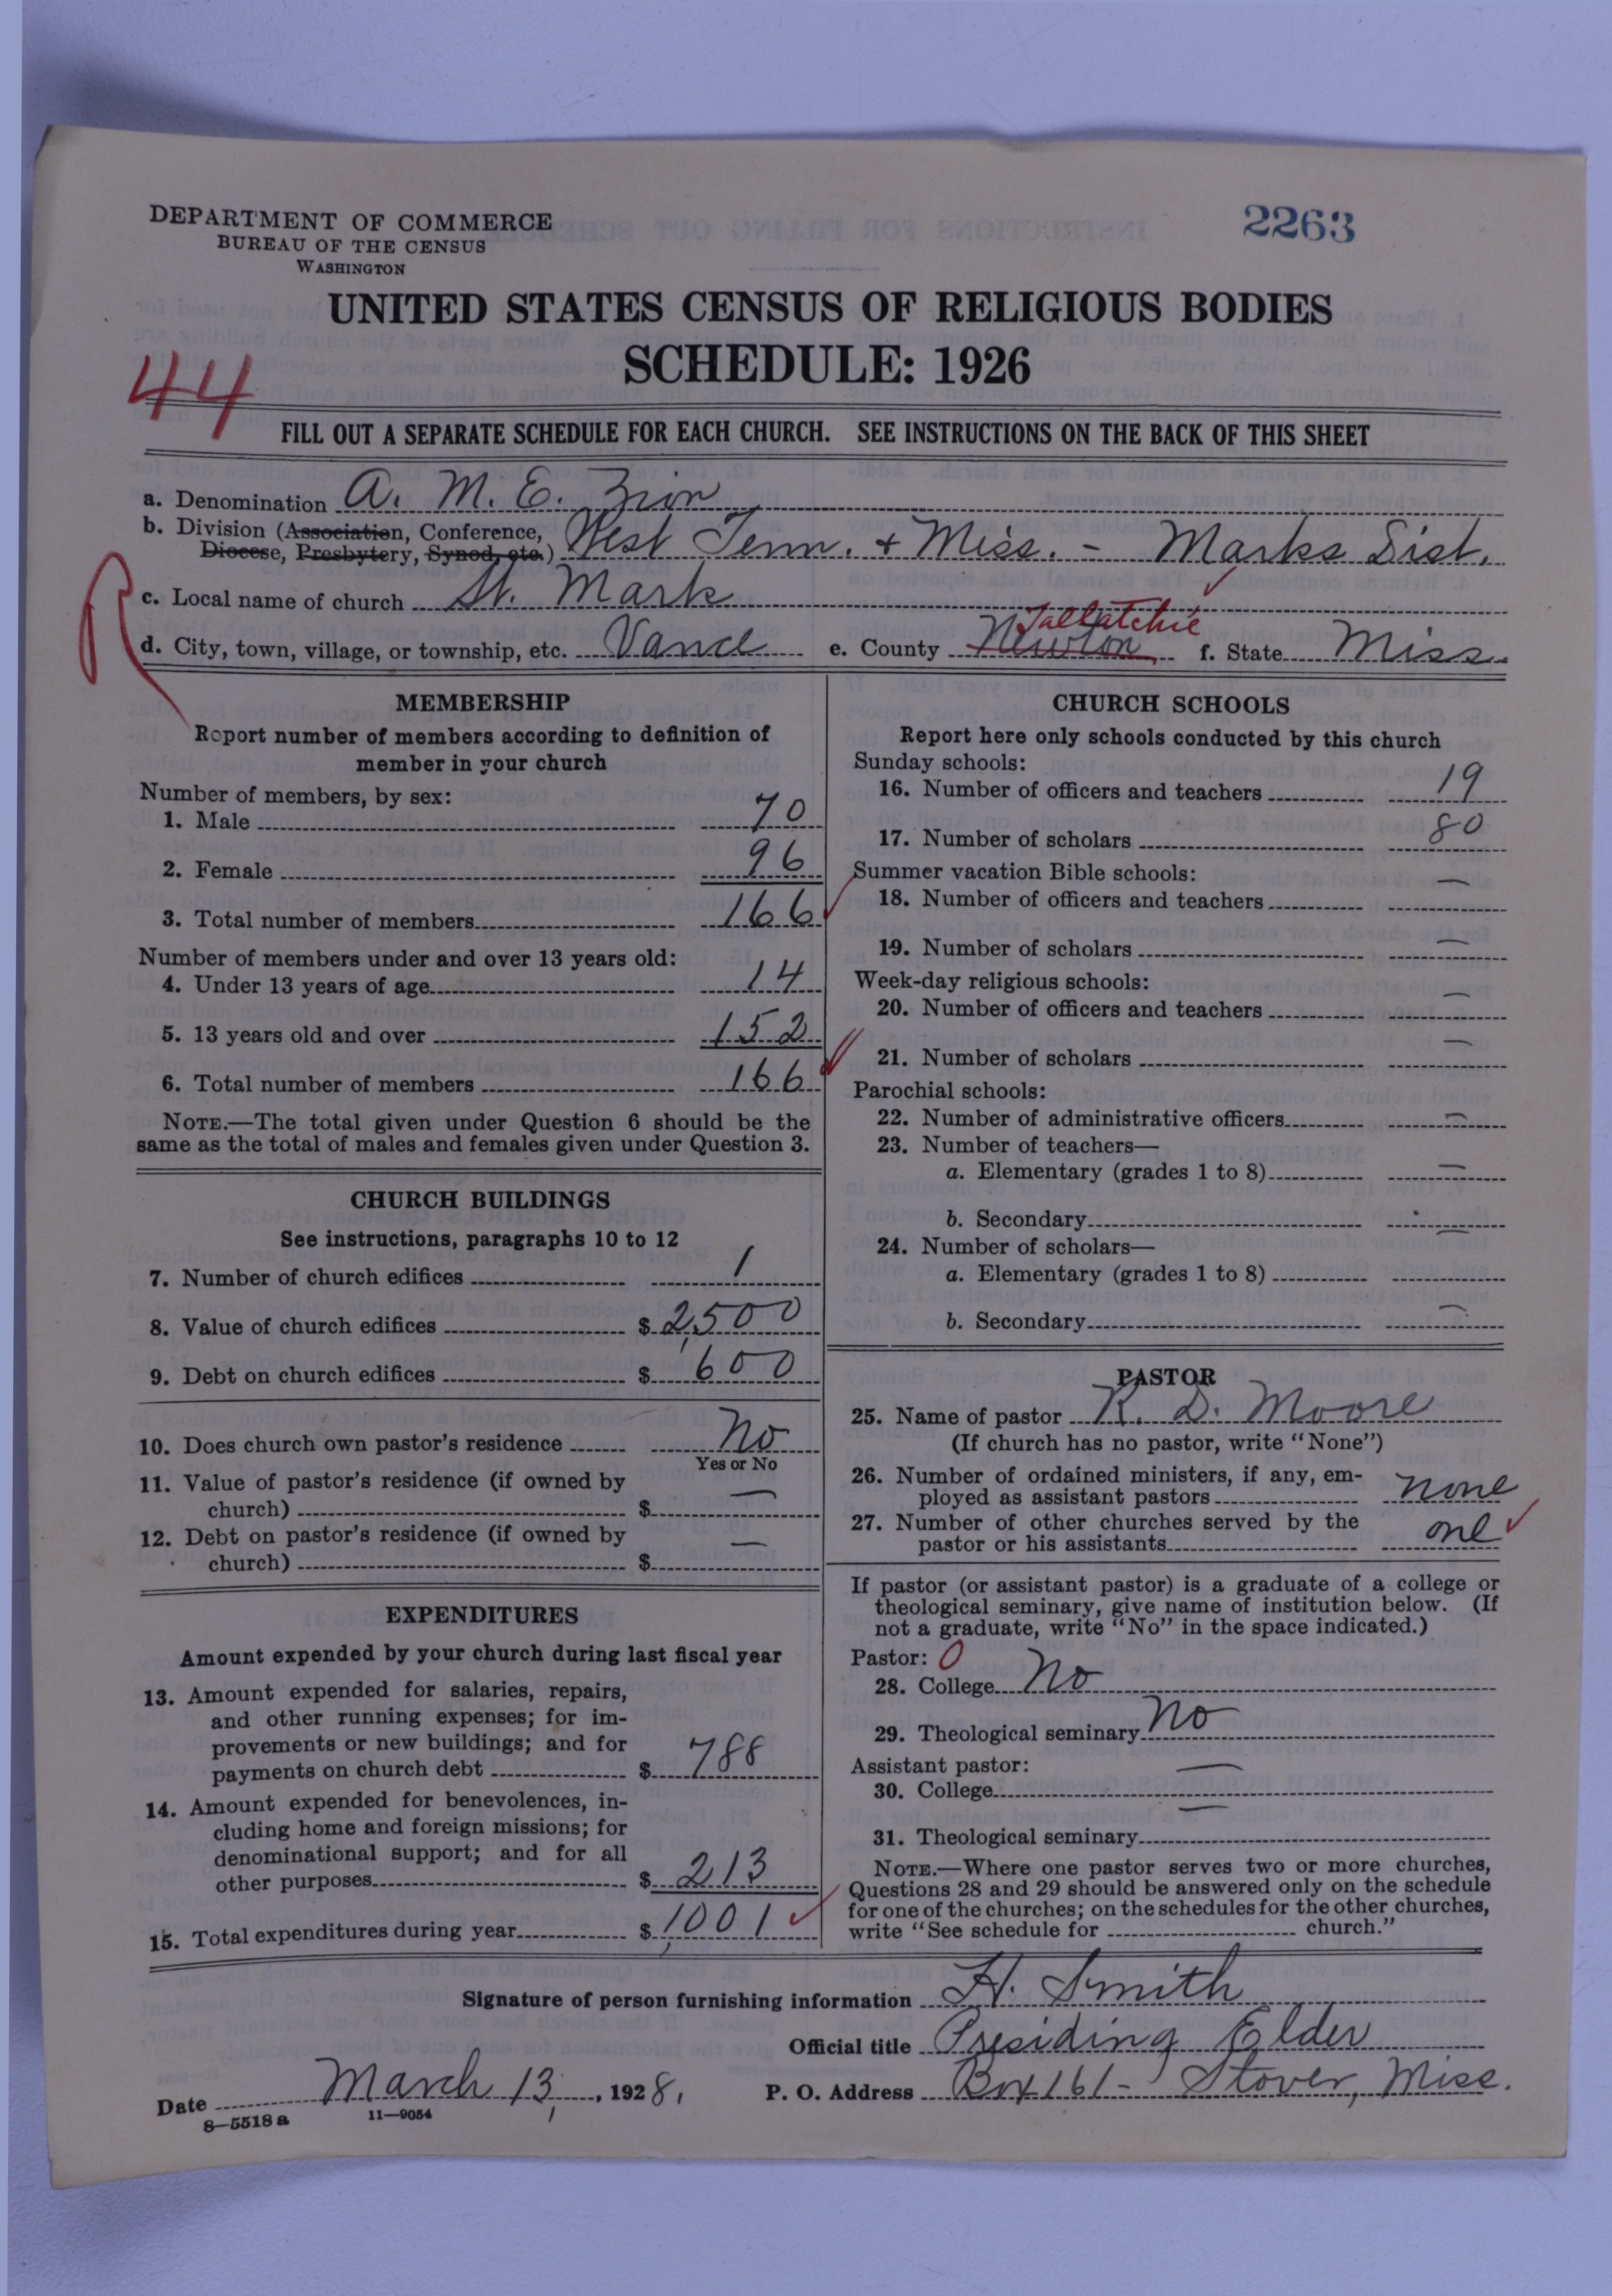 DEPARTMENT OF COMMERCE
BUREAU OF THE CENSUS
WASHINGTON
2263
UNITED STATES CENSUS OF RELIGIOUS BODIES
SCHEDULE: 1926
44
FILL OUT A SEPARATE SCHEDULE FOR EACH CHURCH. SEE INSTRUCTIONS ON THE BACK OF THIS SHEET
a. Denomination A. M. E. Zion
b. Division (Association, Conference, Diocese, Presbytery, Synod, etc.) West Tenn. + Miss. - Marks Dist.
c. Local name of church St. Mark
d. City, town, village, or township, etc. Vance e. County Newton Tallatchie f. State Miss.
MEMBERSHIP
Report number of members according to definition of
member in your church
Number of members, by sex:
1. Male 70
2. Female 96
3. Total number of members 166
Number of members under and over 13 years old:
4. Under 13 years of age 14
5. 13 years old and over 152
6. Total number of members 166
NOTE.—The total given under Question 6 should be the
same as the total of males and females given under Question 3.
CHURCH BUILDINGS
See instructions, paragraphs 10 to 12
7. Number of church edifices 1
8. Value of church edifices $ 2,500
9. Debt on church edifices $ 600
10. Does church own pastor's residence No
Yes or No
11. Value of pastor's residence (if owned by
church) $ —
12. Debt on pastor's residence (if owned by
church) $ —
EXPENDITURES
Amount expended by your church during last fiscal year
13. Amount expended for salaries, repairs,
and other running expenses; for im-
provements or new buildings; and for
payments on church debt $ 788
14. Amount expended for benevolences, in-
cluding home and foreign missions; for
denominational support; and for all
other purposes $ 213
15. Total expenditures during year $ 1,001
CHURCH SCHOOLS
Report here only schools conducted by this church
Sunday schools:
16. Number of officers and teachers 19
17. Number of scholars 80
Summer vacation Bible schools:
18. Number of officers and teachers —
19. Number of scholars —
Week-day religious schools:
20. Number of officers and teachers —
21. Number of scholars —
Parochial schools:
22. Number of administrative officers —
23. Number of teachers—
a. Elementary (grades 1 to 8) —
b. Secondary —
24. Number of scholars—
a. Elementary (grades 1 to 8)
b. Secondary —
PASTOR
25. Name of pastor R. D. Moore
(If church has no pastor, write "None")
26. Number of ordained ministers, if any, em-
ployed as assistant pastors none
27. Number of other churches served by the
pastor or his assistants one
If pastor (or assistant pastor) is a graduate of a college or
theological seminary, give name of institution below. (If
not a graduate, write "No" in the space indicated.)
Pastor: 0
28. College No
29. Theological seminary No
Assistant pastor:
30. College —
31. Theological seminary —
NOTE.—Where one pastor serves two or more churches,
Questions 28 and 29 should be answered only on the schedule
for one of the churches; on the schedules for the other churches,
write "See schedule for church."
Signature of person furnishing information H. Smith
Official title Presiding Elder
Date March 13, 1928. P. O. Address Box 161 - Stover, Miss.
8—5518a 11—9054